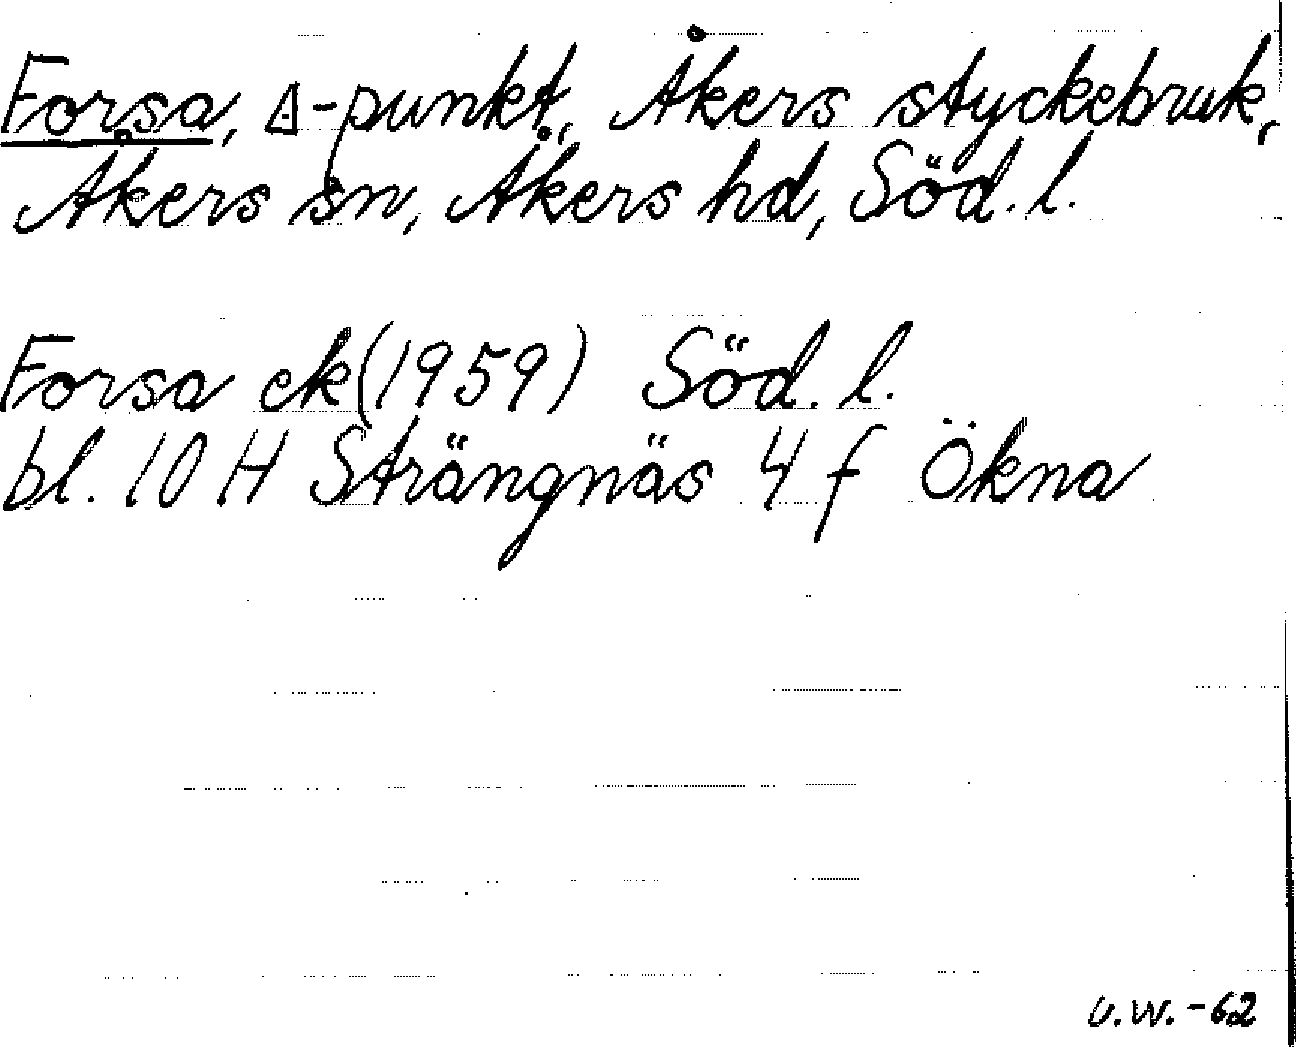 Forsa, △-punkt, Åkers styckebruk,
Åkers sn, Åkers hd, Söd. l.
Forsa ek (1959) Söd. l.
bl. 10 H Strängnäs 4 f Ökna
U.W. -62